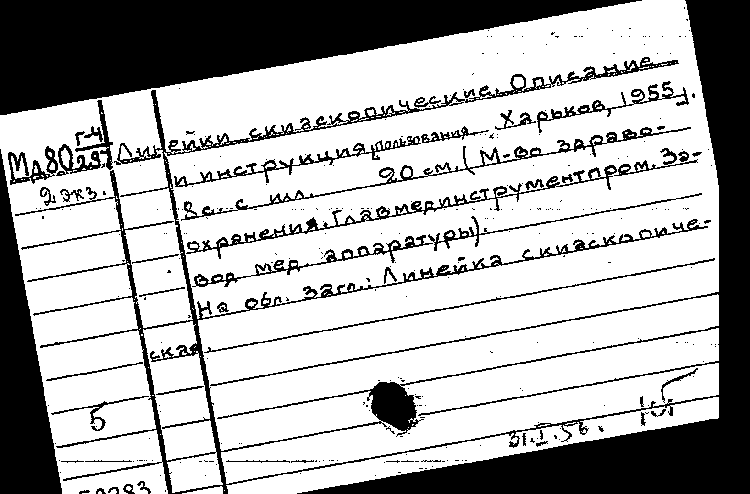 Мд80 Г-4/297 Линейки скиаскопические. Описание
и инструкция пользования. Харьков, 1955г.
2 экз.
8с. с илл. 20 см. (М-во здраво-
охранения. Главмединструментпром. За-
вод мед. аппаратуры).
На обл. загл.: Линейка скиаскопиче-
ская.
5
31.I.56.